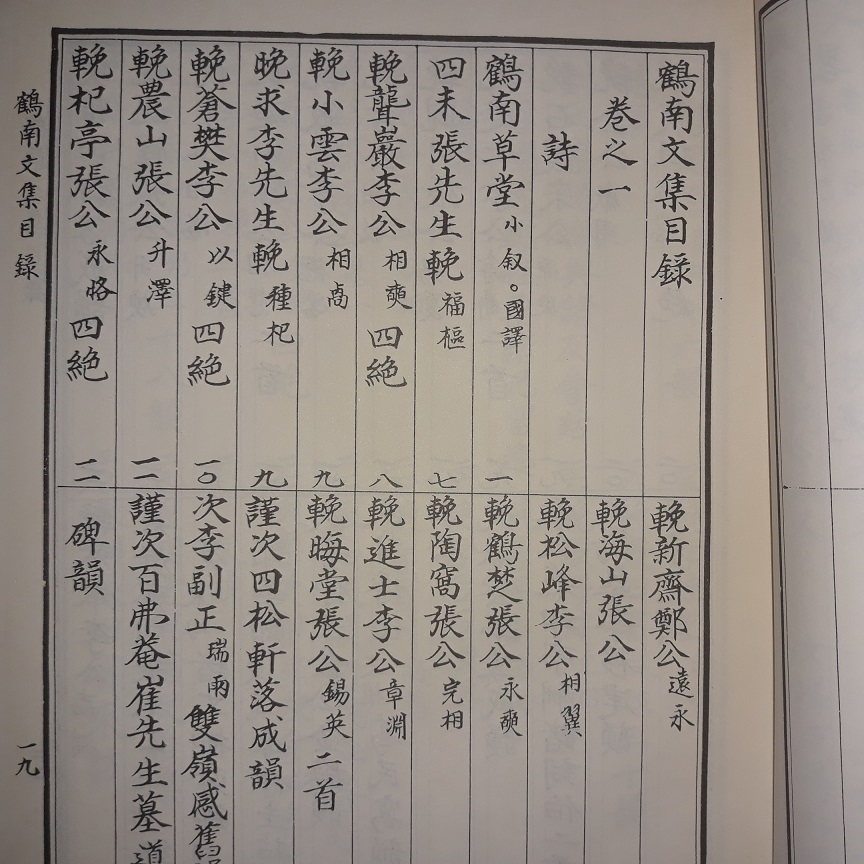 鶴南文集目錄
卷之一
詩
鶴南草堂 小叙。國譯 一
四未張先生輓 福樞 七
輓聾巖李公 相奭 四絶 八
輓小雲李公 相卨 九
晚求李先生輓 種杞 九
輓蒼樊李公 以鍵 四絶 一〇
輓農山張公 升澤 一一
輓杞亭張公 永恪 四絶 一二
輓新齋鄭公 遠永
輓海山張公
輓松峰李公 相翼
輓鶴楚張公 永奭
輓陶窩張公 完相
輓進士李公 章淵
輓晦堂張公 錫英 二首
謹次四松軒落成韻
次李副正 瑞雨 雙嶺感舊
謹次百弗菴崔先生墓道
碑韻
鶴南文集目錄
一九